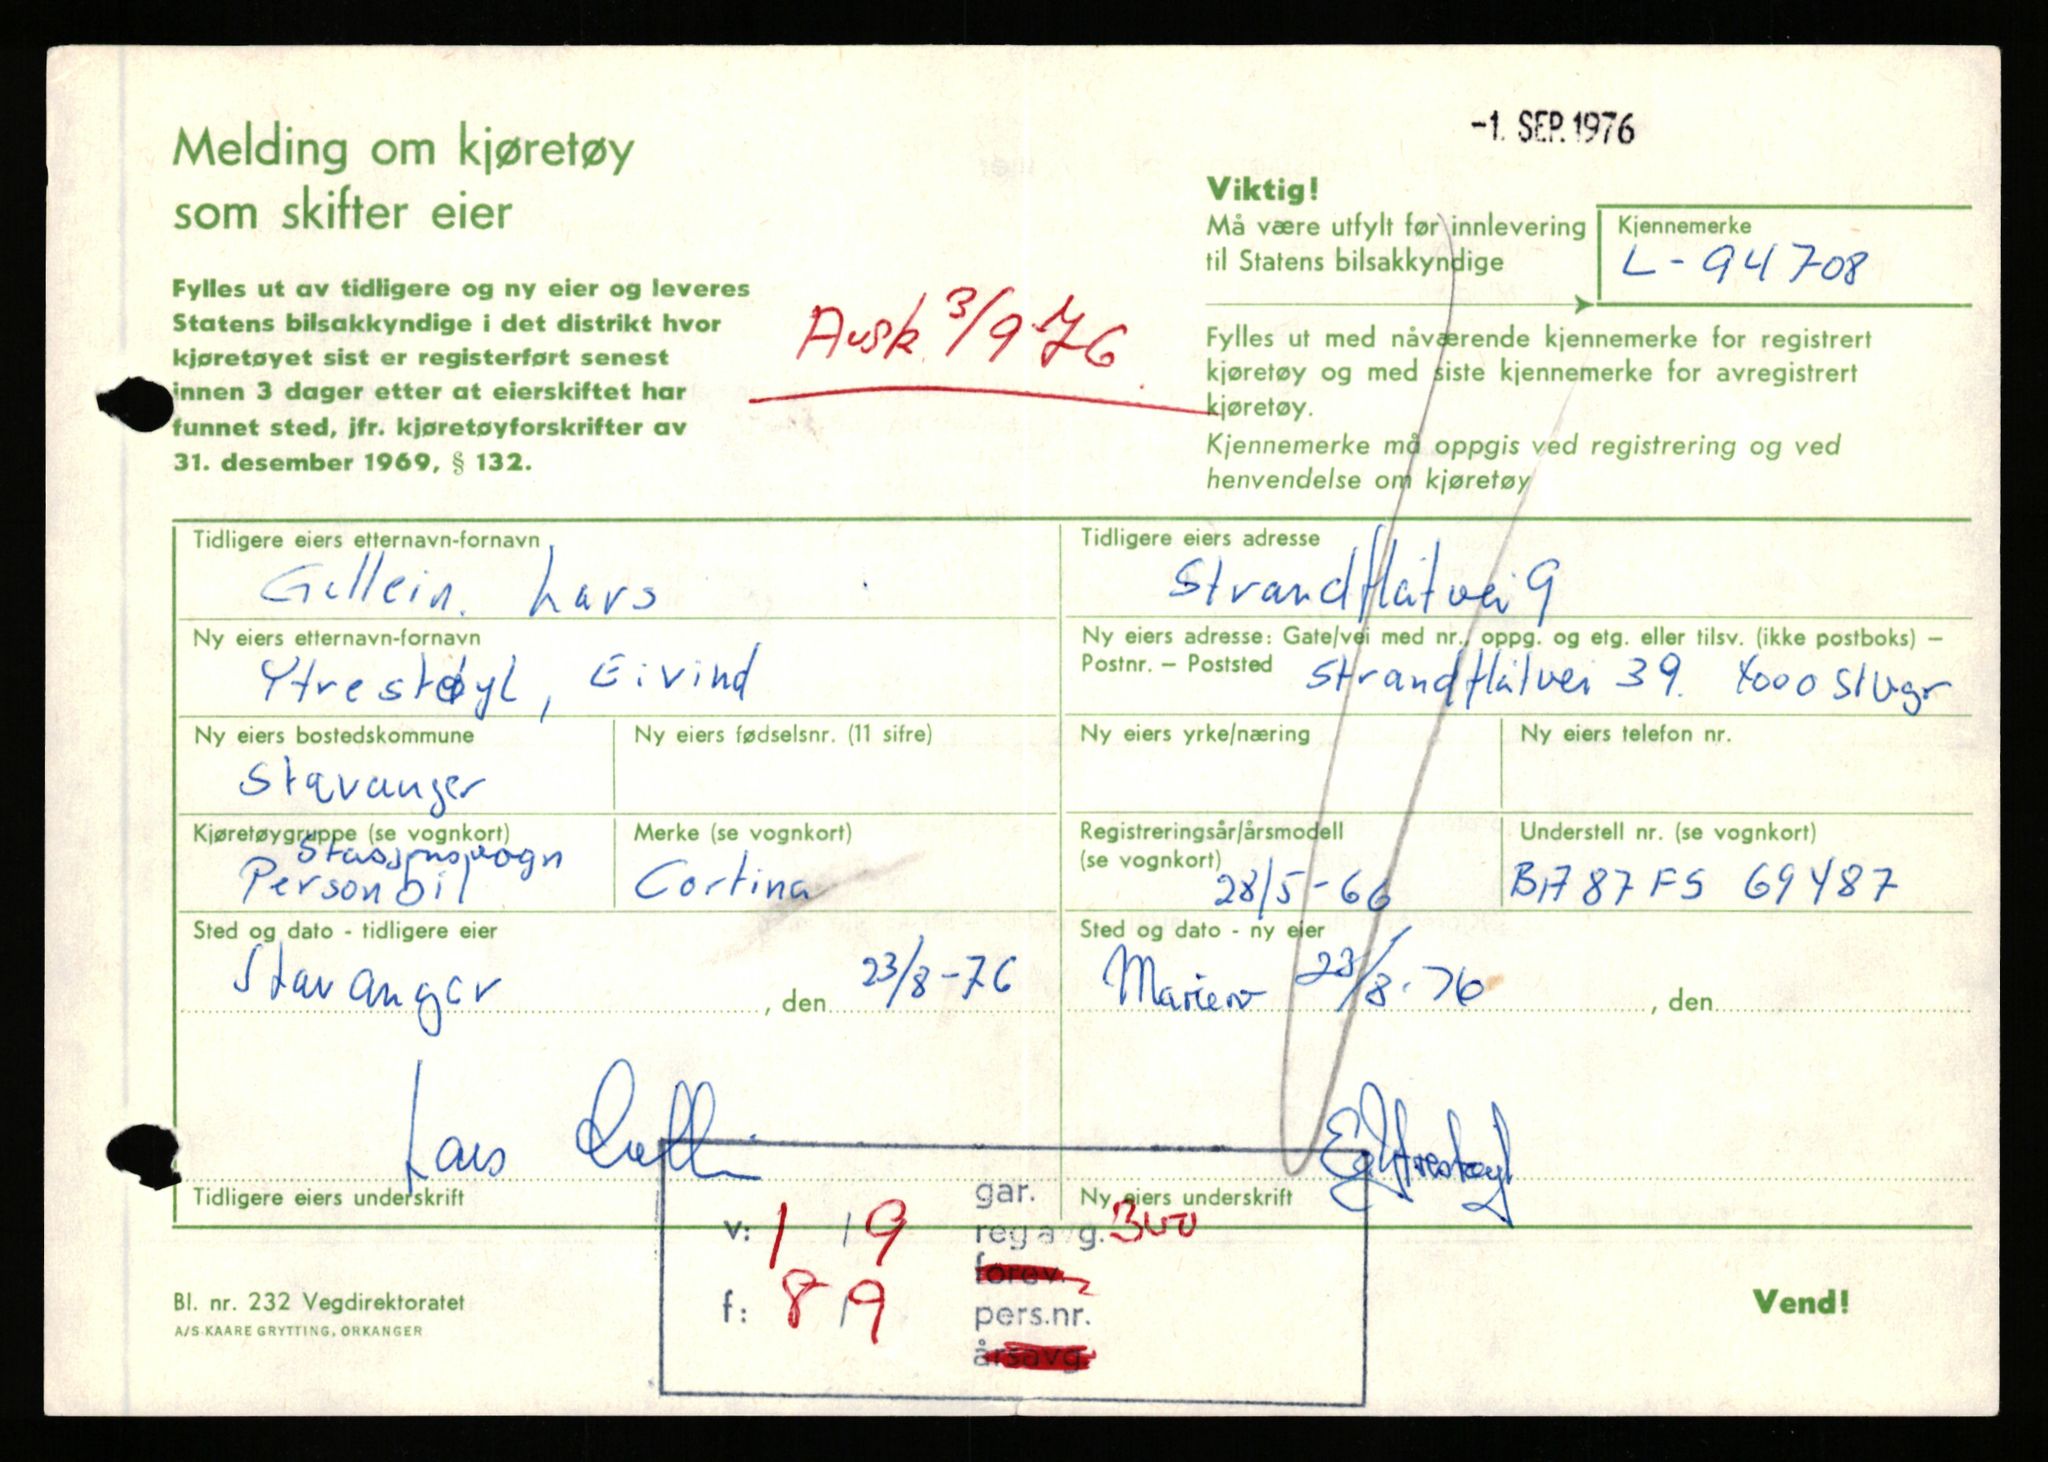 -1. SEP. 1976
Melding om kjøretøy
som skifter eier
Fylles ut av tidligere og ny eier og leveres
Statens bilsakkyndige i det distrikt hvor
kjøretøyet sist er registerført senest
innen 3 dager etter at eierskiftet har
funnet sted, jfr. kjøretøyforskrifter av
31. desember 1969, § 132.
Avsk. 3/9 76
Viktig!
Må være utfylt før innlevering
til Statens bilsakkyndige
Kjennemerke
L - 94708
Fylles ut med nåværende kjennemerke for registrert
kjøretøy og med siste kjennemerke for avregistrert
kjøretøy.
Kjennemerke må oppgis ved registrering og ved
henvendelse om kjøretøy
Tidligere eiers etternavn-fornavn
Gullein. Lars
Tidligere eiers adresse
Strandflåtvei 9
Ny eiers etternavn-fornavn
Ytrestøyl, Eivind
Ny eiers adresse: Gate/vei med nr., oppg. og etg. eller tilsv. (ikke postboks) –
Postnr. – Poststed
Strandflåtvei 39. 4000 Stvgr
Ny eiers bostedskommune
Stavanger
Ny eiers fødselsnr. (11 sifre)
Ny eiers yrke/næring
Ny eiers telefon nr.
Kjøretøygruppe (se vognkort)
Stasjonsvogn
Personbil
Merke (se vognkort)
Cortina
Registreringsår/årsmodell
(se vognkort)
28/5-66
Understell nr. (se vognkort)
BA787FS 69487
Sted og dato - tidligere eier
Stavanger, den 23/8-76
Sted og dato - ny eier
Mariero 23/8-76, den
Lars
Tidligere eiers underskrift
E Ytrestøyl
Ny eiers underskrift
gar.
v: 1 19
reg avg. 300
forev.
f: 8 19
pers.nr.
årsavg.
Bl. nr. 232 Vegdirektoratet
A/S KAARE GRYTTING, ORKANGER
Vend!